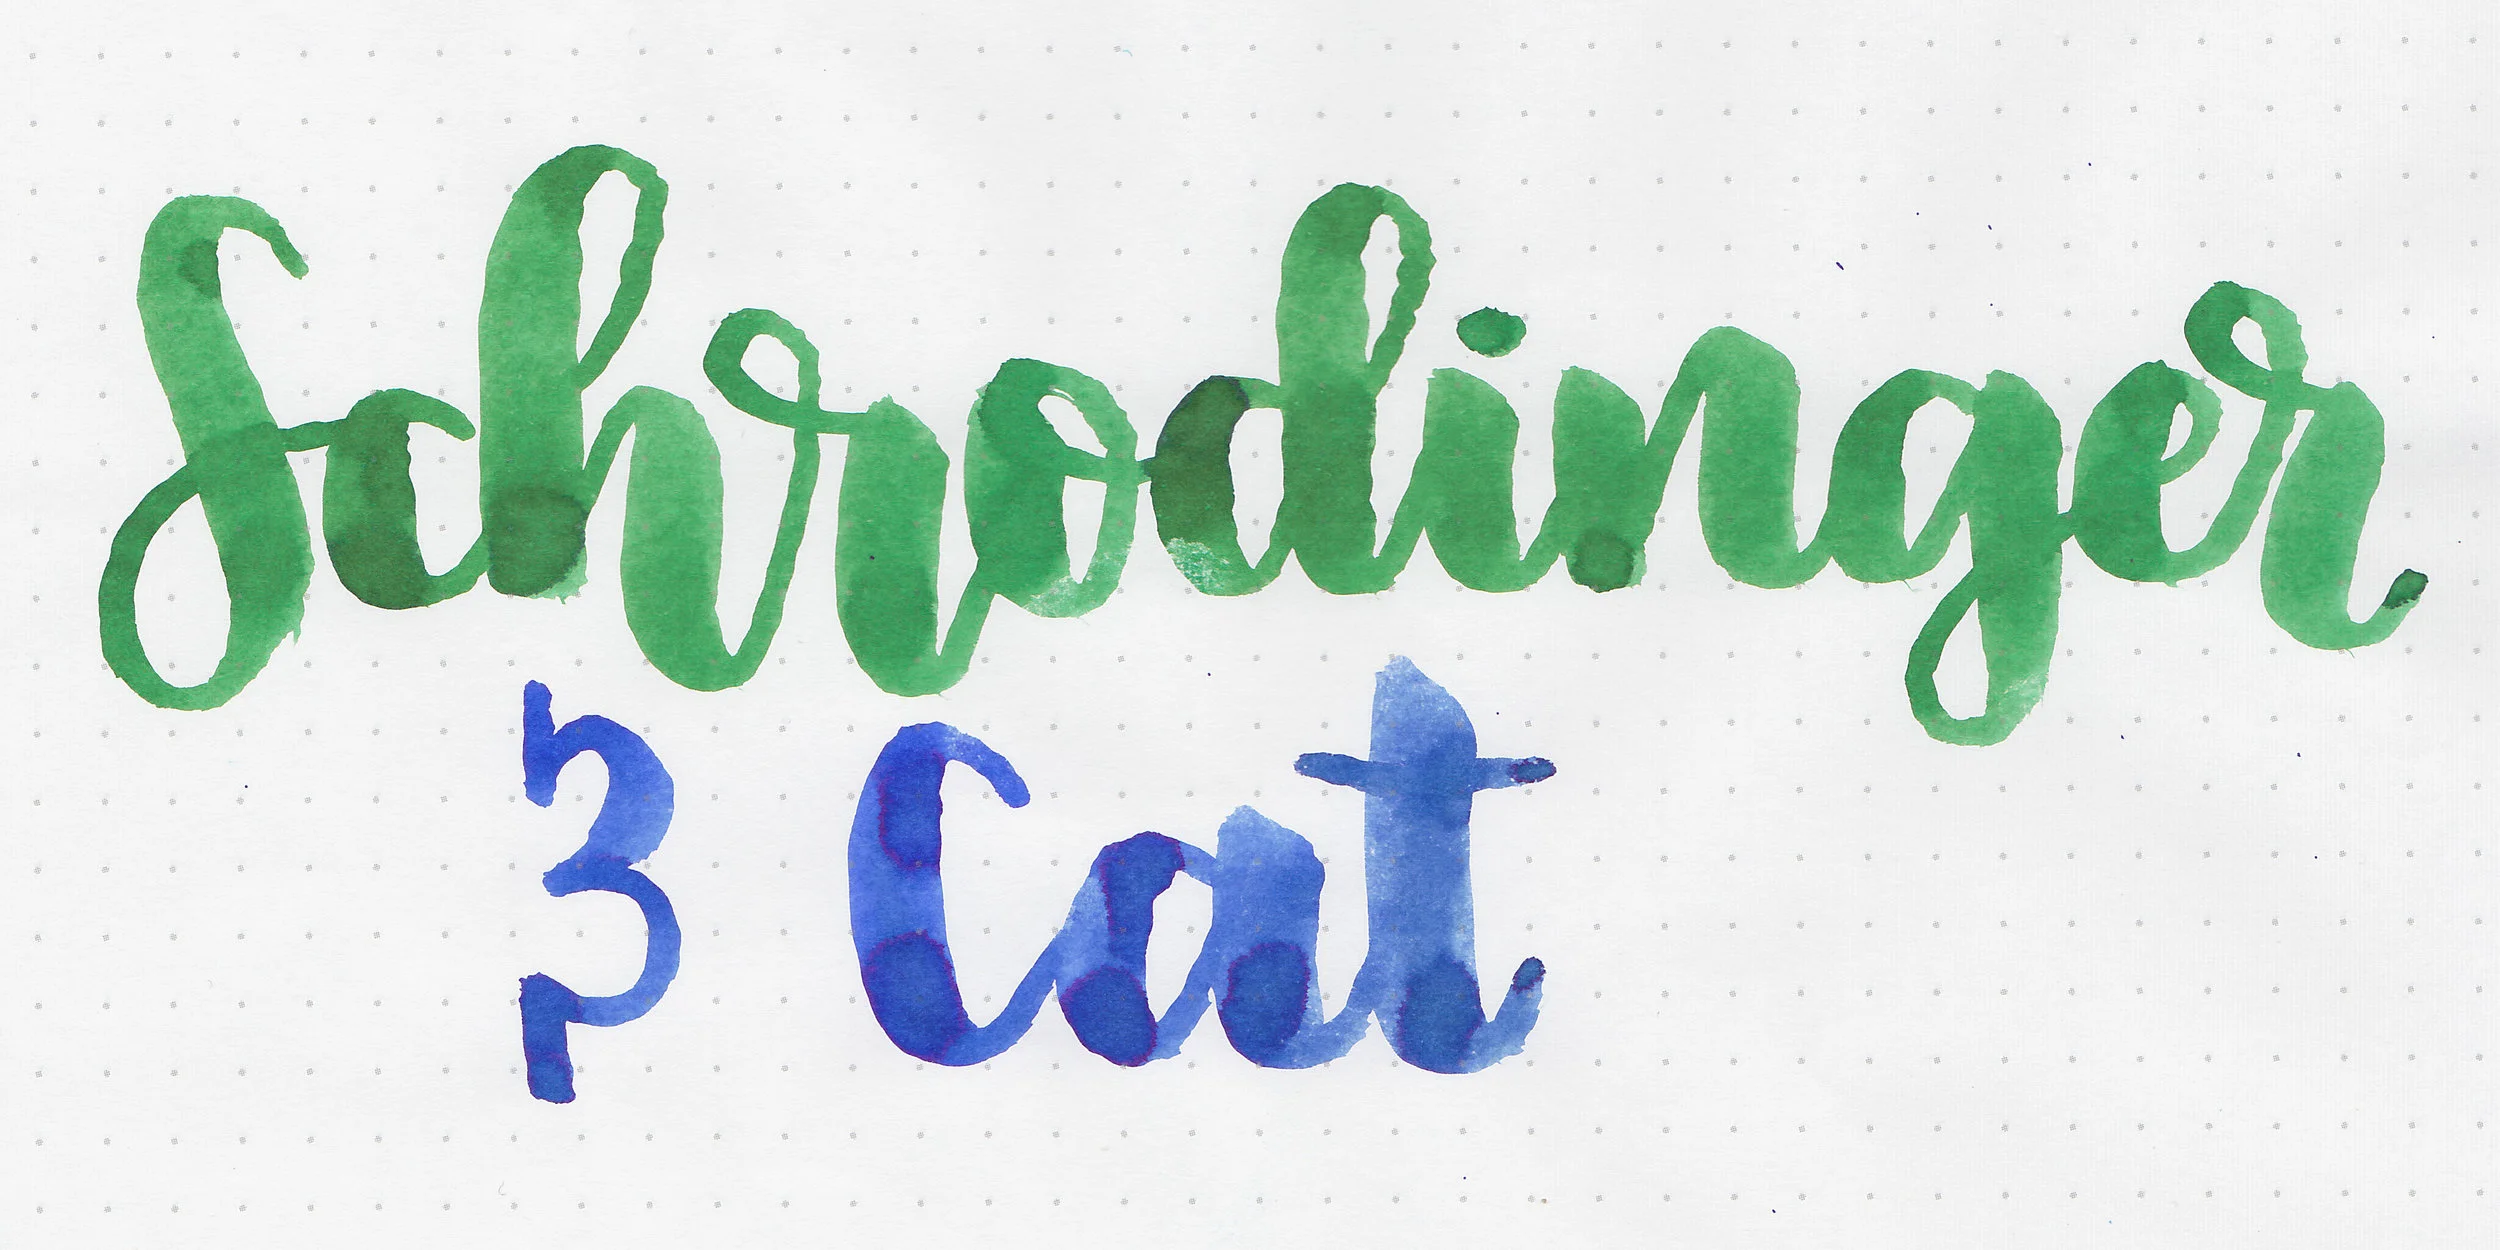 Schrodinger
& Cat